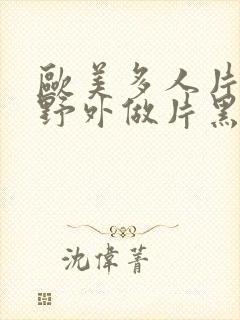 歐美多人片
野外做片黑
沈偉菁